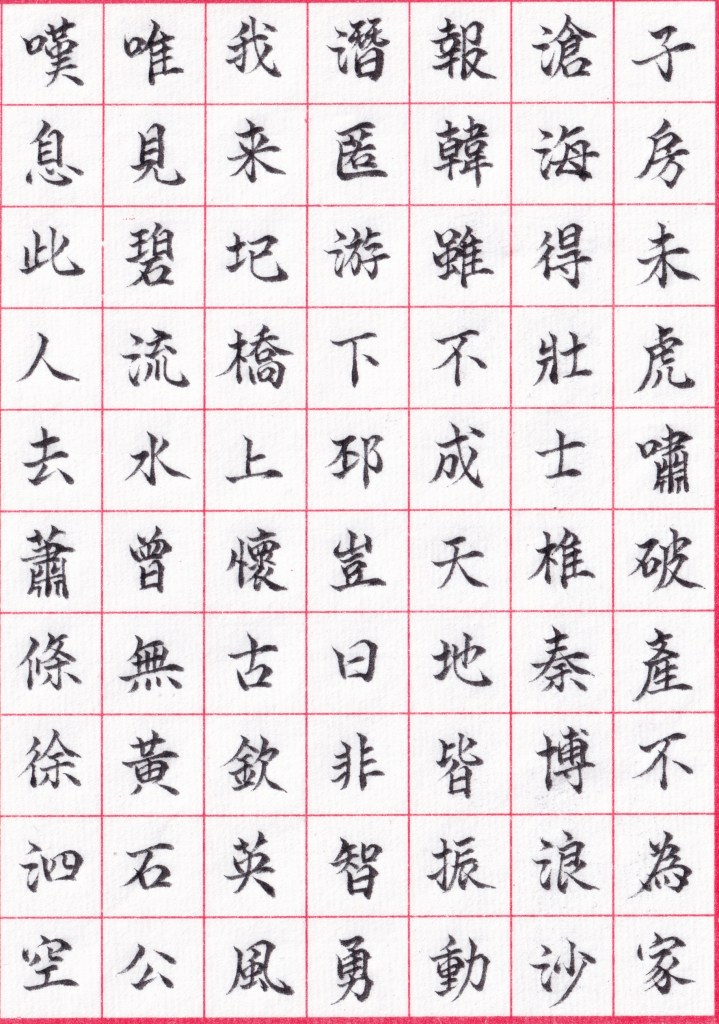 子房未虎嘯破產不為家
滄海得壯士椎秦博浪沙
報韓雖不成天地皆振動
潛匿游下邳豈曰非智勇
我来圯橋上懷古欽英風
唯見碧流水曾無黃石公
嘆息此人去蕭條徐泗空